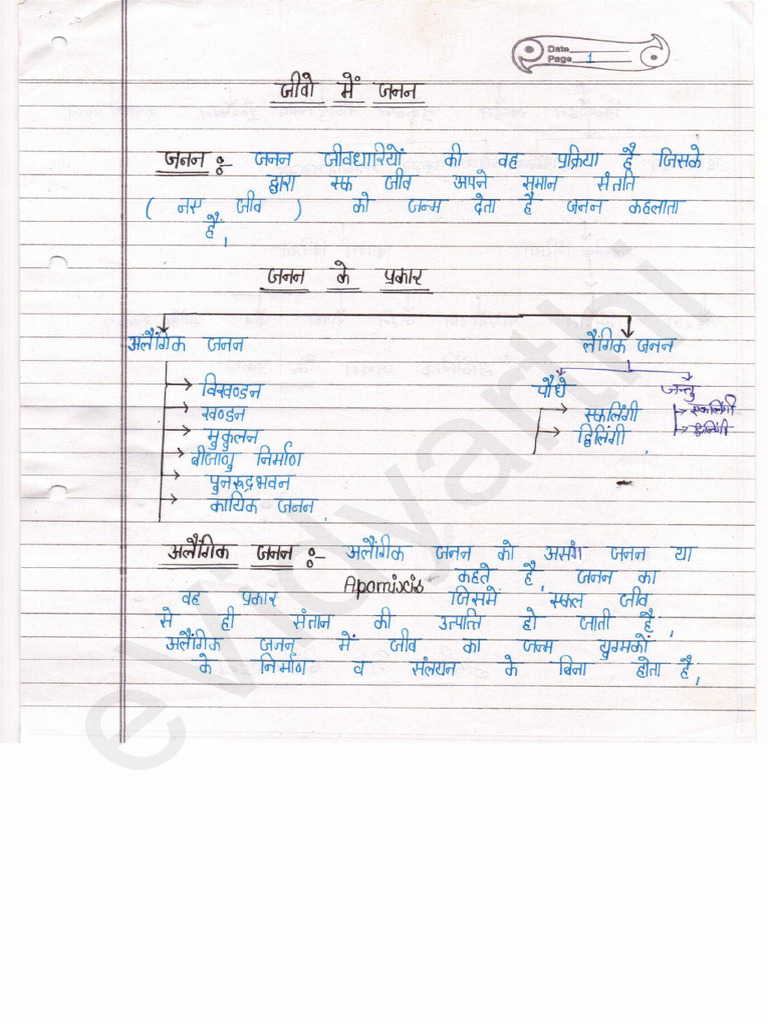 Date
Page 1
जीवो में जनन
जनन :- जनन जीवधारियों की वह प्रक्रिया है जिसके
द्वारा स्क जीव अपने समान संतति
( नस जीव ) को जन्म देता है जनन कहलाता
है,
जनन के प्रकार
अलैंगिक जनन लैंगिक जनन
विखण्डन पौधे जन्तु
खण्डन स्कलिंगी स्कलिंगी
मुकुलन द्विलिंगी, द्विलिंगी
बीजाणु निर्माण
पुनरुद्रभवन
कायिक जनन,
अलैंगिक जनन :- अलैंगिक जनन को असंग जनन या
Apomixis कहते है, जनन का
वह प्रकार जिसमें स्कल जीव
से ही संतान की उत्पत्ति हो जाती है,
अलैंगिक जनन में जीव का जन्म युग्मकों
के निर्माण व संलयन के बिना होता है,
eVidyarthi